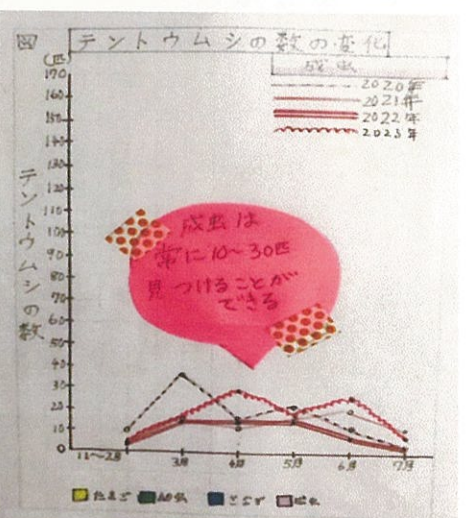 図 テントウムシの数の変化
成虫
2020年
2021年
2022年
2023年
(匹)
170
160
150
140
130
120
110
100
90
80
70
60
50
40
30
20
10
0
テントウムシの数
成虫は
常に10~30匹
見つけることが
できる
11~2月 3月 4月 5月 6月 7月
たまご 幼虫 さなぎ 成虫